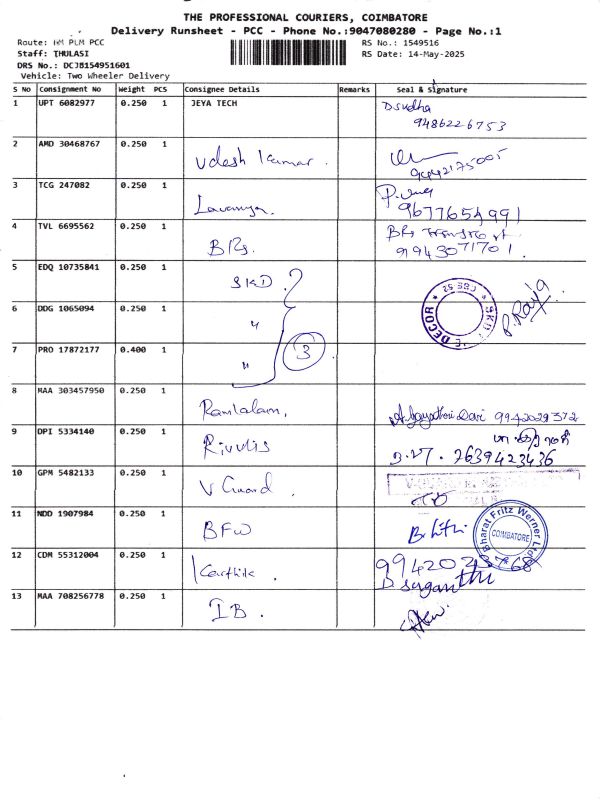 THE PROFESSIONAL COURIERS, COIMBATORE
Delivery Runsheet - PCC - Phone No.:9047080280 - Page No.:1
Route: PLM PCC
RS No.: 1549516
Staff: THULASI
RS Date: 14-May-2025
DRS No.: DCJB154951601
Vehicle: Two Wheeler Delivery
S No Consignment No Weight PCS Consignee Details Remarks Seal & Signature
1 UPT 6082977 0.250 1 JEYA TECH D sudha
9486226753
2 AMD 30468767 0.250 1 Udesh Kumar.
9442175005
3 TCG 247082 0.250 1 Lavanya.
9677654991
4 TVL 6695562 0.250 1 BRs. BRs Transport
9943071701.
5 EDQ 10735841 0.250 1 SKD
6 DDG 1065094 0.250 1 " DECOR P. Raja
7 PRO 17872177 0.400 1 " 3
8 MAA 303457950 0.250 1 Ramlalam. 9942029372
9 DPI 5334140 0.250 1 Rivulis
2639423436
10 GPM 5482133 0.250 1 V Guard
11 NDD 1907984 0.250 1 BFW Bharat Fritz Werner Ltd
COIMBATORE
12 CDM 55312004 0.250 1 Karthik.
D suganthi
13 MAA 708256778 0.250 1 IB.